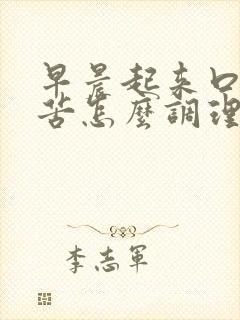 早晨起來口
苦怎麼調理
李志軍